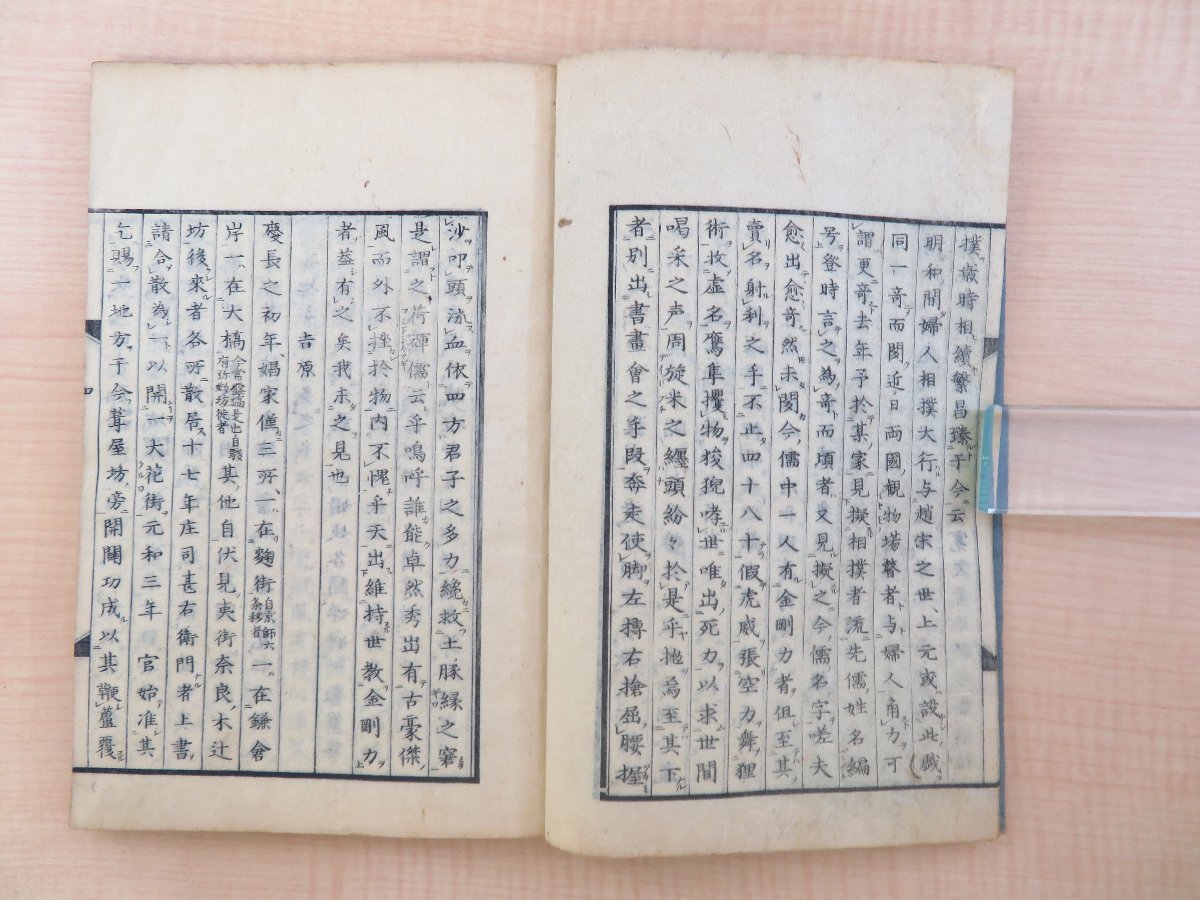 撲歳時相續繁昌臻于今云
明和間婦人相撲大行与趙宋之世上元或設此戯
同一竒而閔近日両國観物場瞽者与婦人角力可
謂更竒去年予於某家見擬相撲者流先儒姓名編
号登時言之為竒而頃者又見擬之今儒名字嗟夫
愈出愈竒然未閔今儒中一人有金剛力者但至其
賣名射利之手不止四十八十假虎威張空力舞狸
術收虚名鷹隼攫物狻猊哮世唯出死力以求世間
喝采之声周旋米之纏頭紛々於是乎地為至其下
者別出書畫會之手段奔走使脚左搏右搶屈腰握
沙叩頭流血依四方君子之多力纔救土豚縁之窘
是謂之荷禪儒云乎嗚呼誰能卓然秀出有古豪傑
風而外不挫於物内不愧乎天出維持世教金剛力
者蓋有之矣我未之見也
吉原
慶長之初年娼家僅三所一在麹街自京師六条移者一在鎌倉
岸一在大橋今常盤橋是也自駿府弥勒坊徙者其他自伏見夷街奈良木辻
坊後來者各所散居十七年庄司甚右衛門者上書
請合散為一以開一大花街元和三年官始准其
乞賜一地方于今葺屋坊旁開闢功成以其鞭蘆覆
四